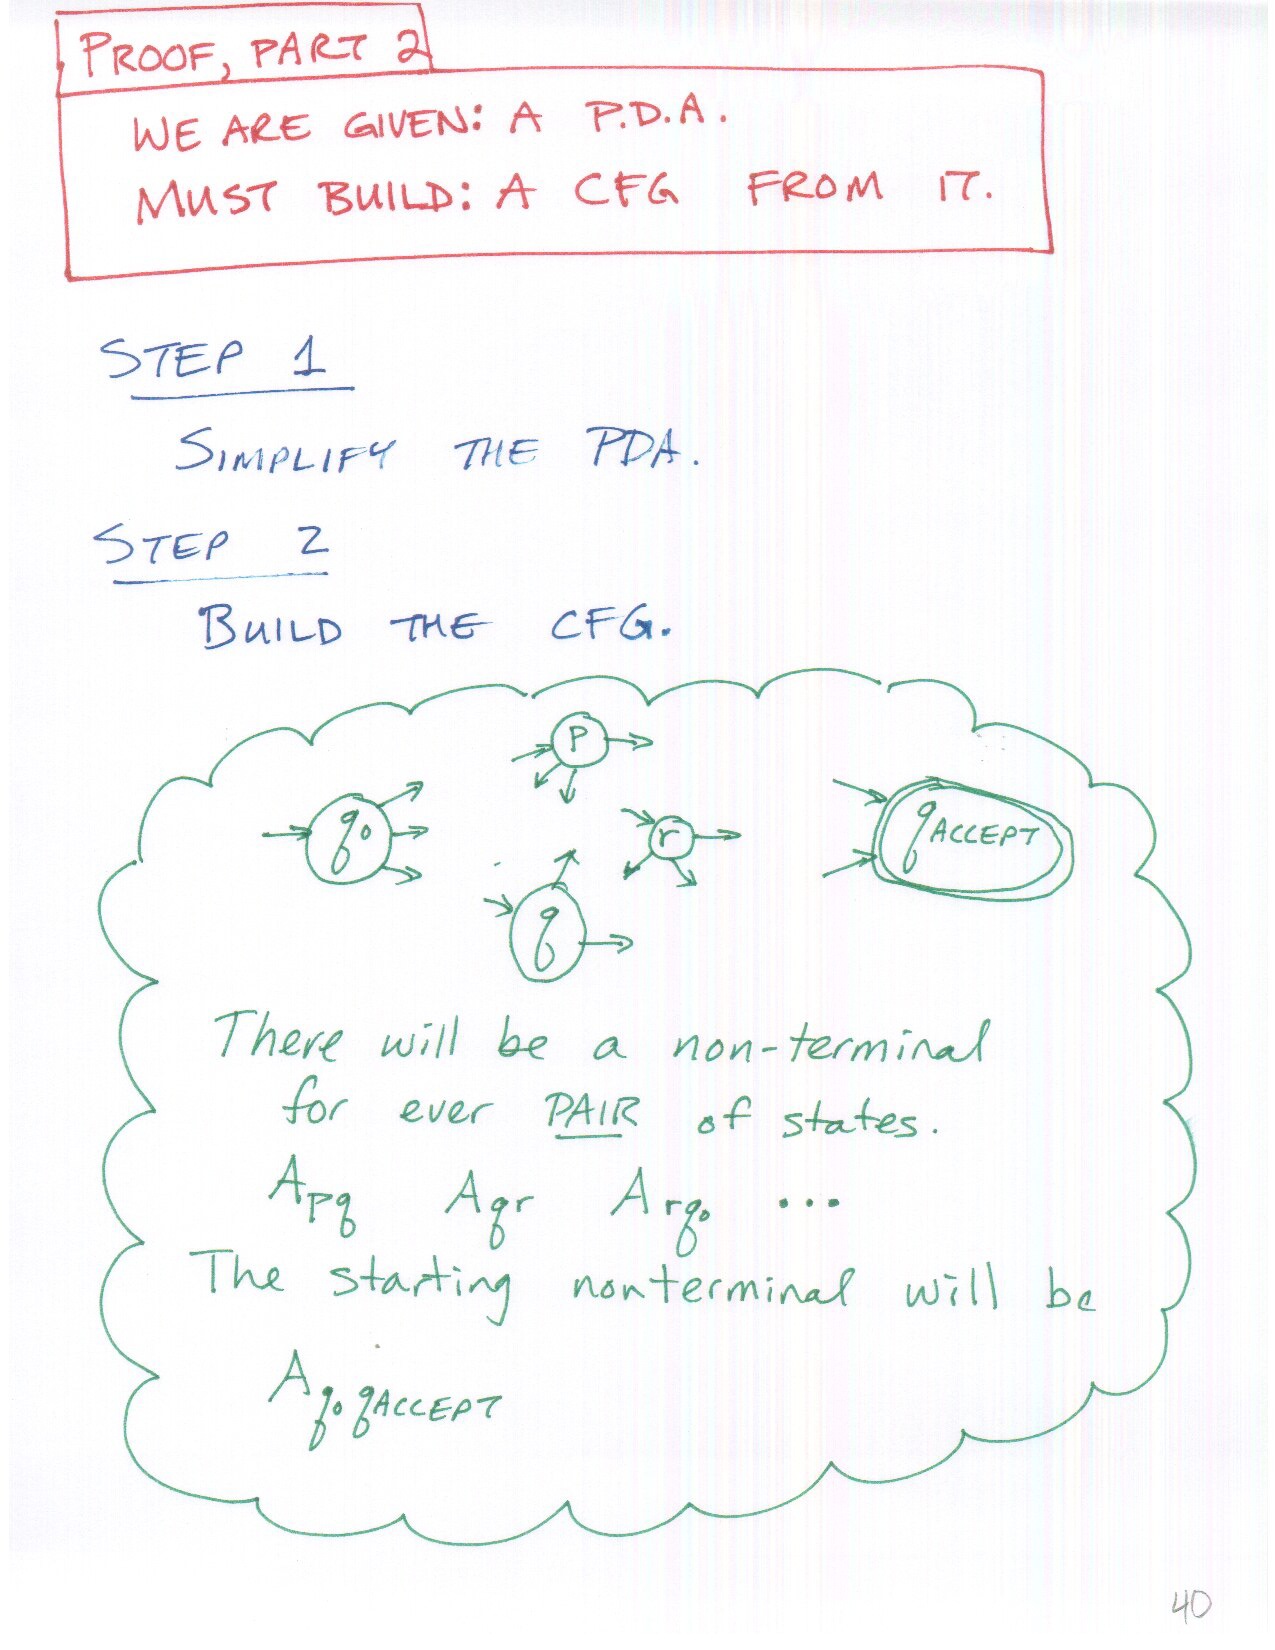 PROOF, PART 2
WE ARE GIVEN: A P.D.A.
MUST BUILD: A CFG FROM IT.
STEP 1
SIMPLIFY THE PDA.
STEP 2
BUILD THE CFG.
P
q0
r
qACCEPT
q
There will be a non-terminal
for ever PAIR of states.
Apq Aqr Arq0 ...
The starting nonterminal will be
Aq0qACCEPT
40